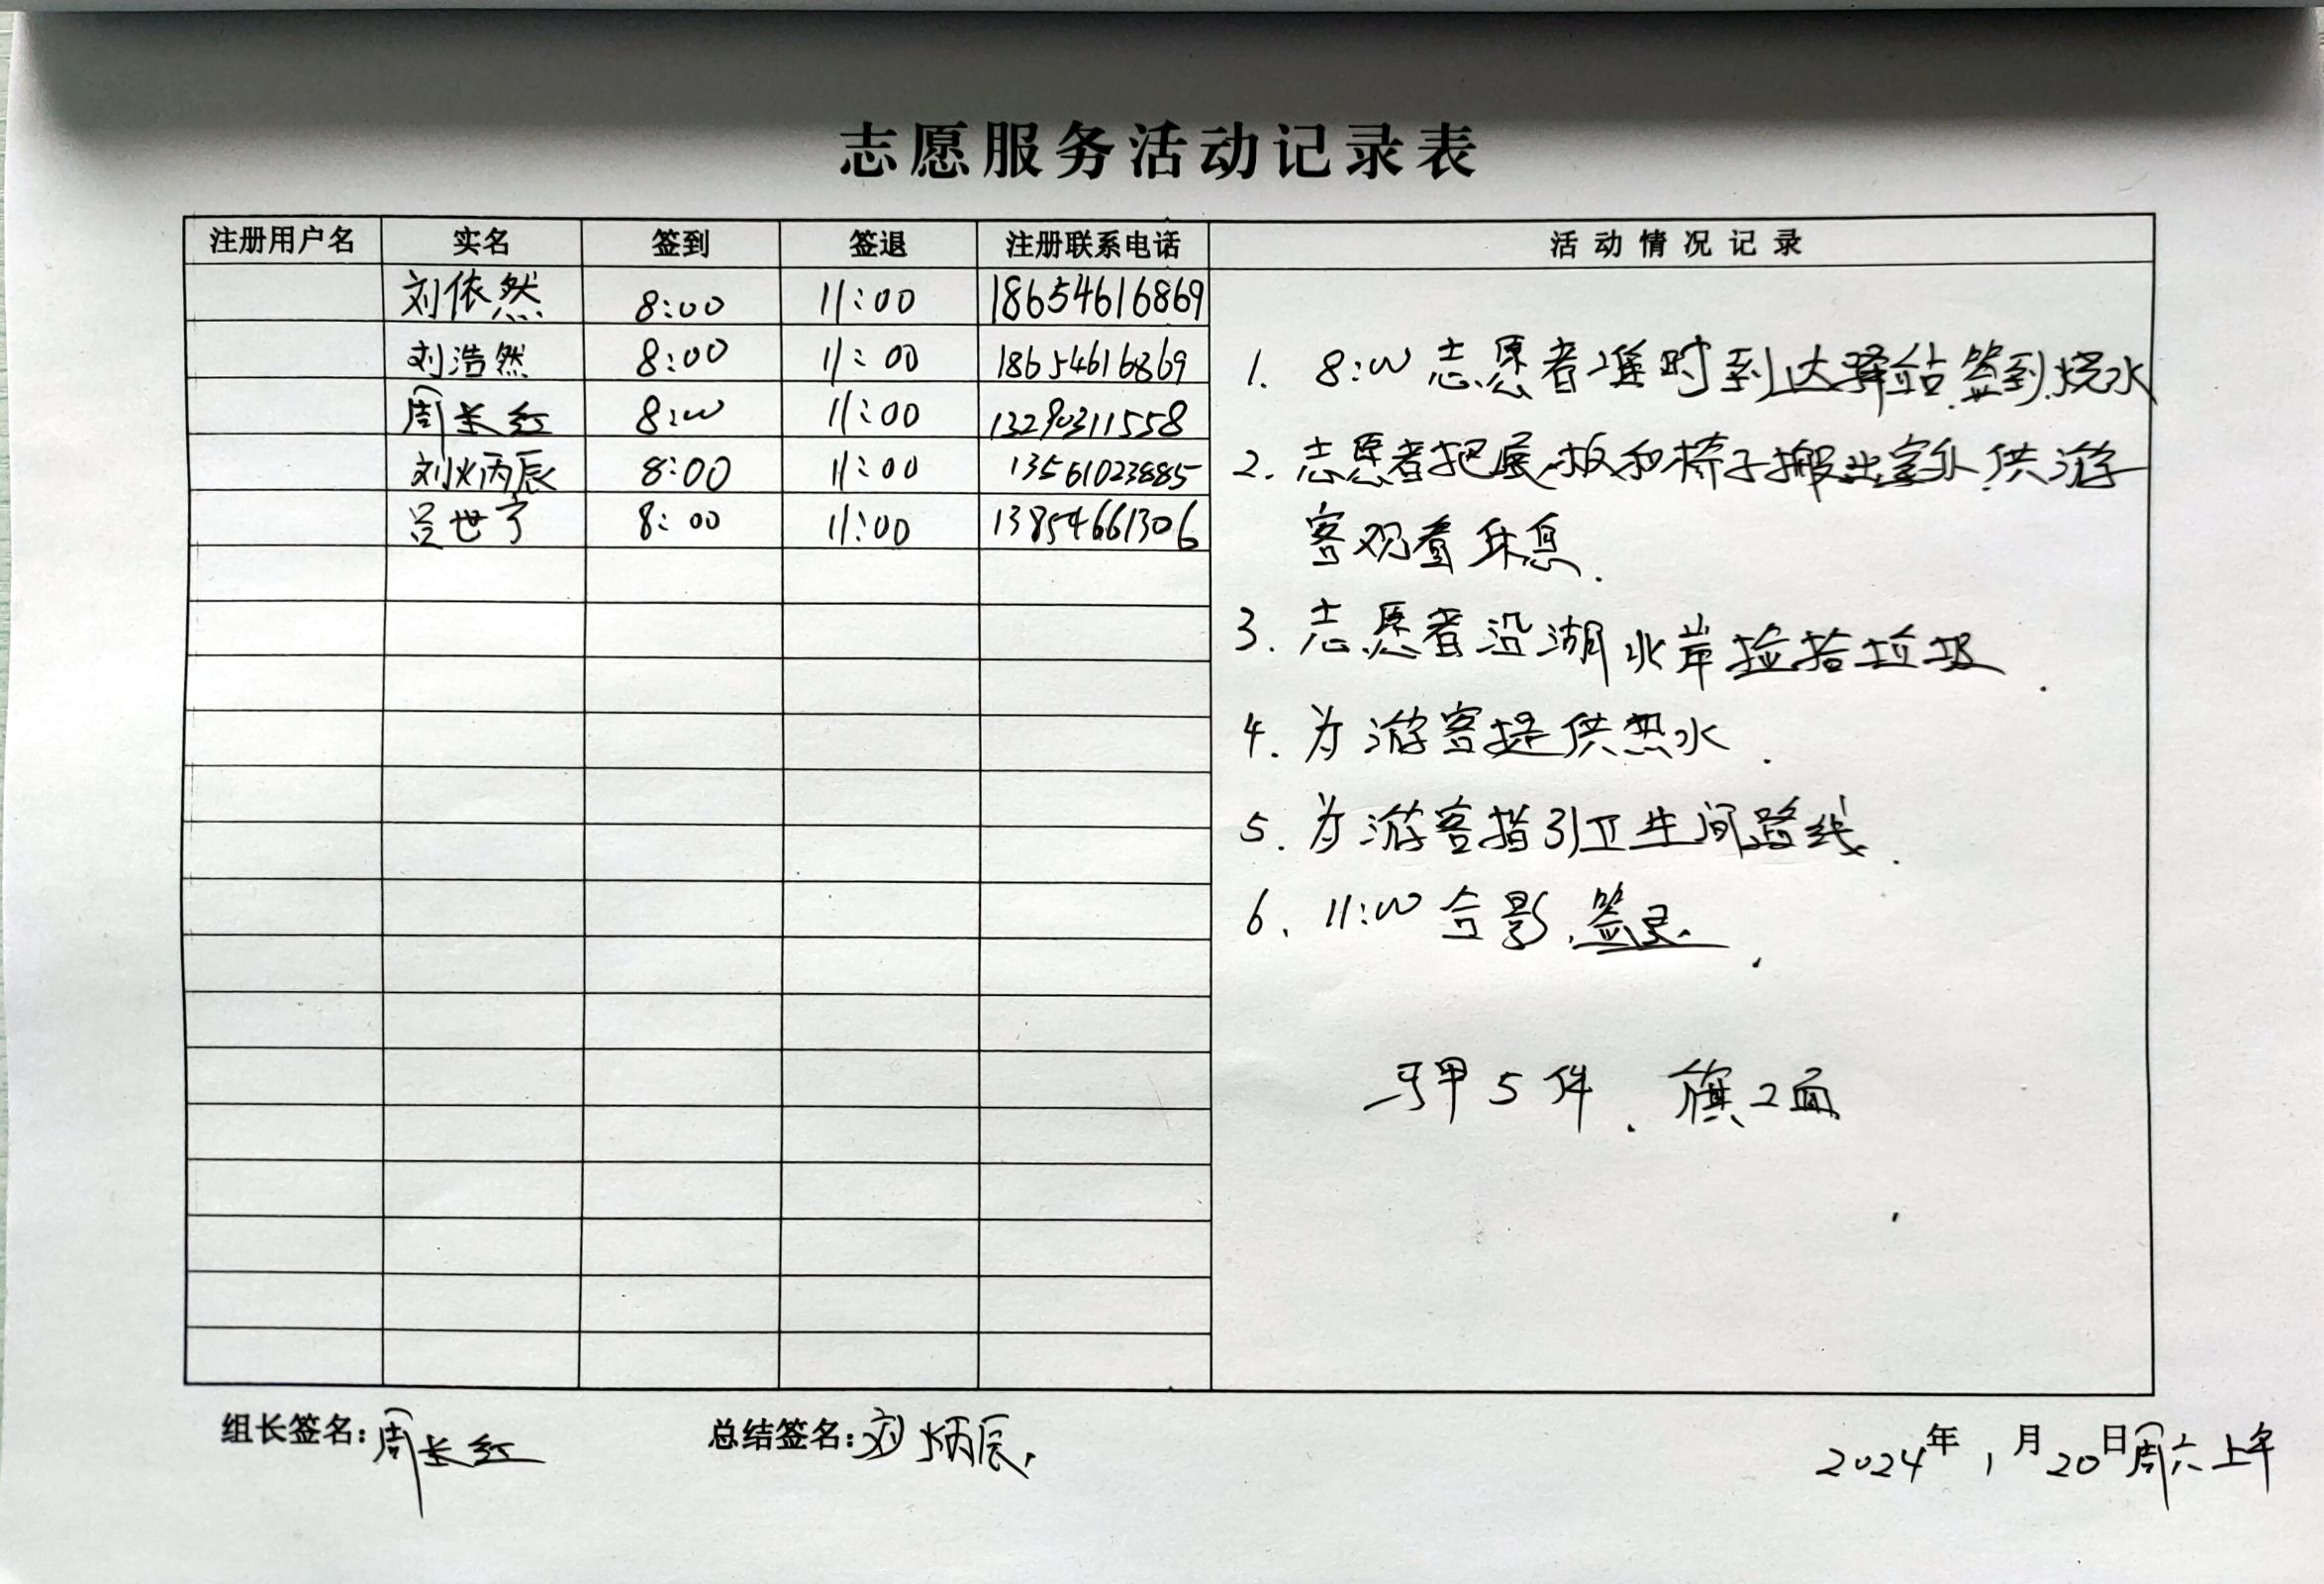 志愿服务活动记录表
注册用户名 实名 签到 签退 注册联系电话 活动情况记录
刘依然 8:00 11:00 18654616869
刘浩然 8:00 11:00 18654616869
周长红 8:00 11:00 13290311558
刘炳辰 8:00 11:00 13561023885
吕世亨 8:00 11:00 13854661306
1. 8:00 志愿者准时到达驿站.签到.烧水
2. 志愿者把展板和椅子搬出室外.供游
客观看休息.
3. 志愿者沿湖北岸捡拾垃圾.
4. 为游客提供热水.
5. 为游客指引卫生间路线.
6. 11:00 合影.签退.
马甲5件. 旗2面
组长签名:周长红 总结签名:刘炳辰.
2024年1月20日周六上午